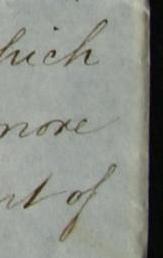 hich
more
nt of